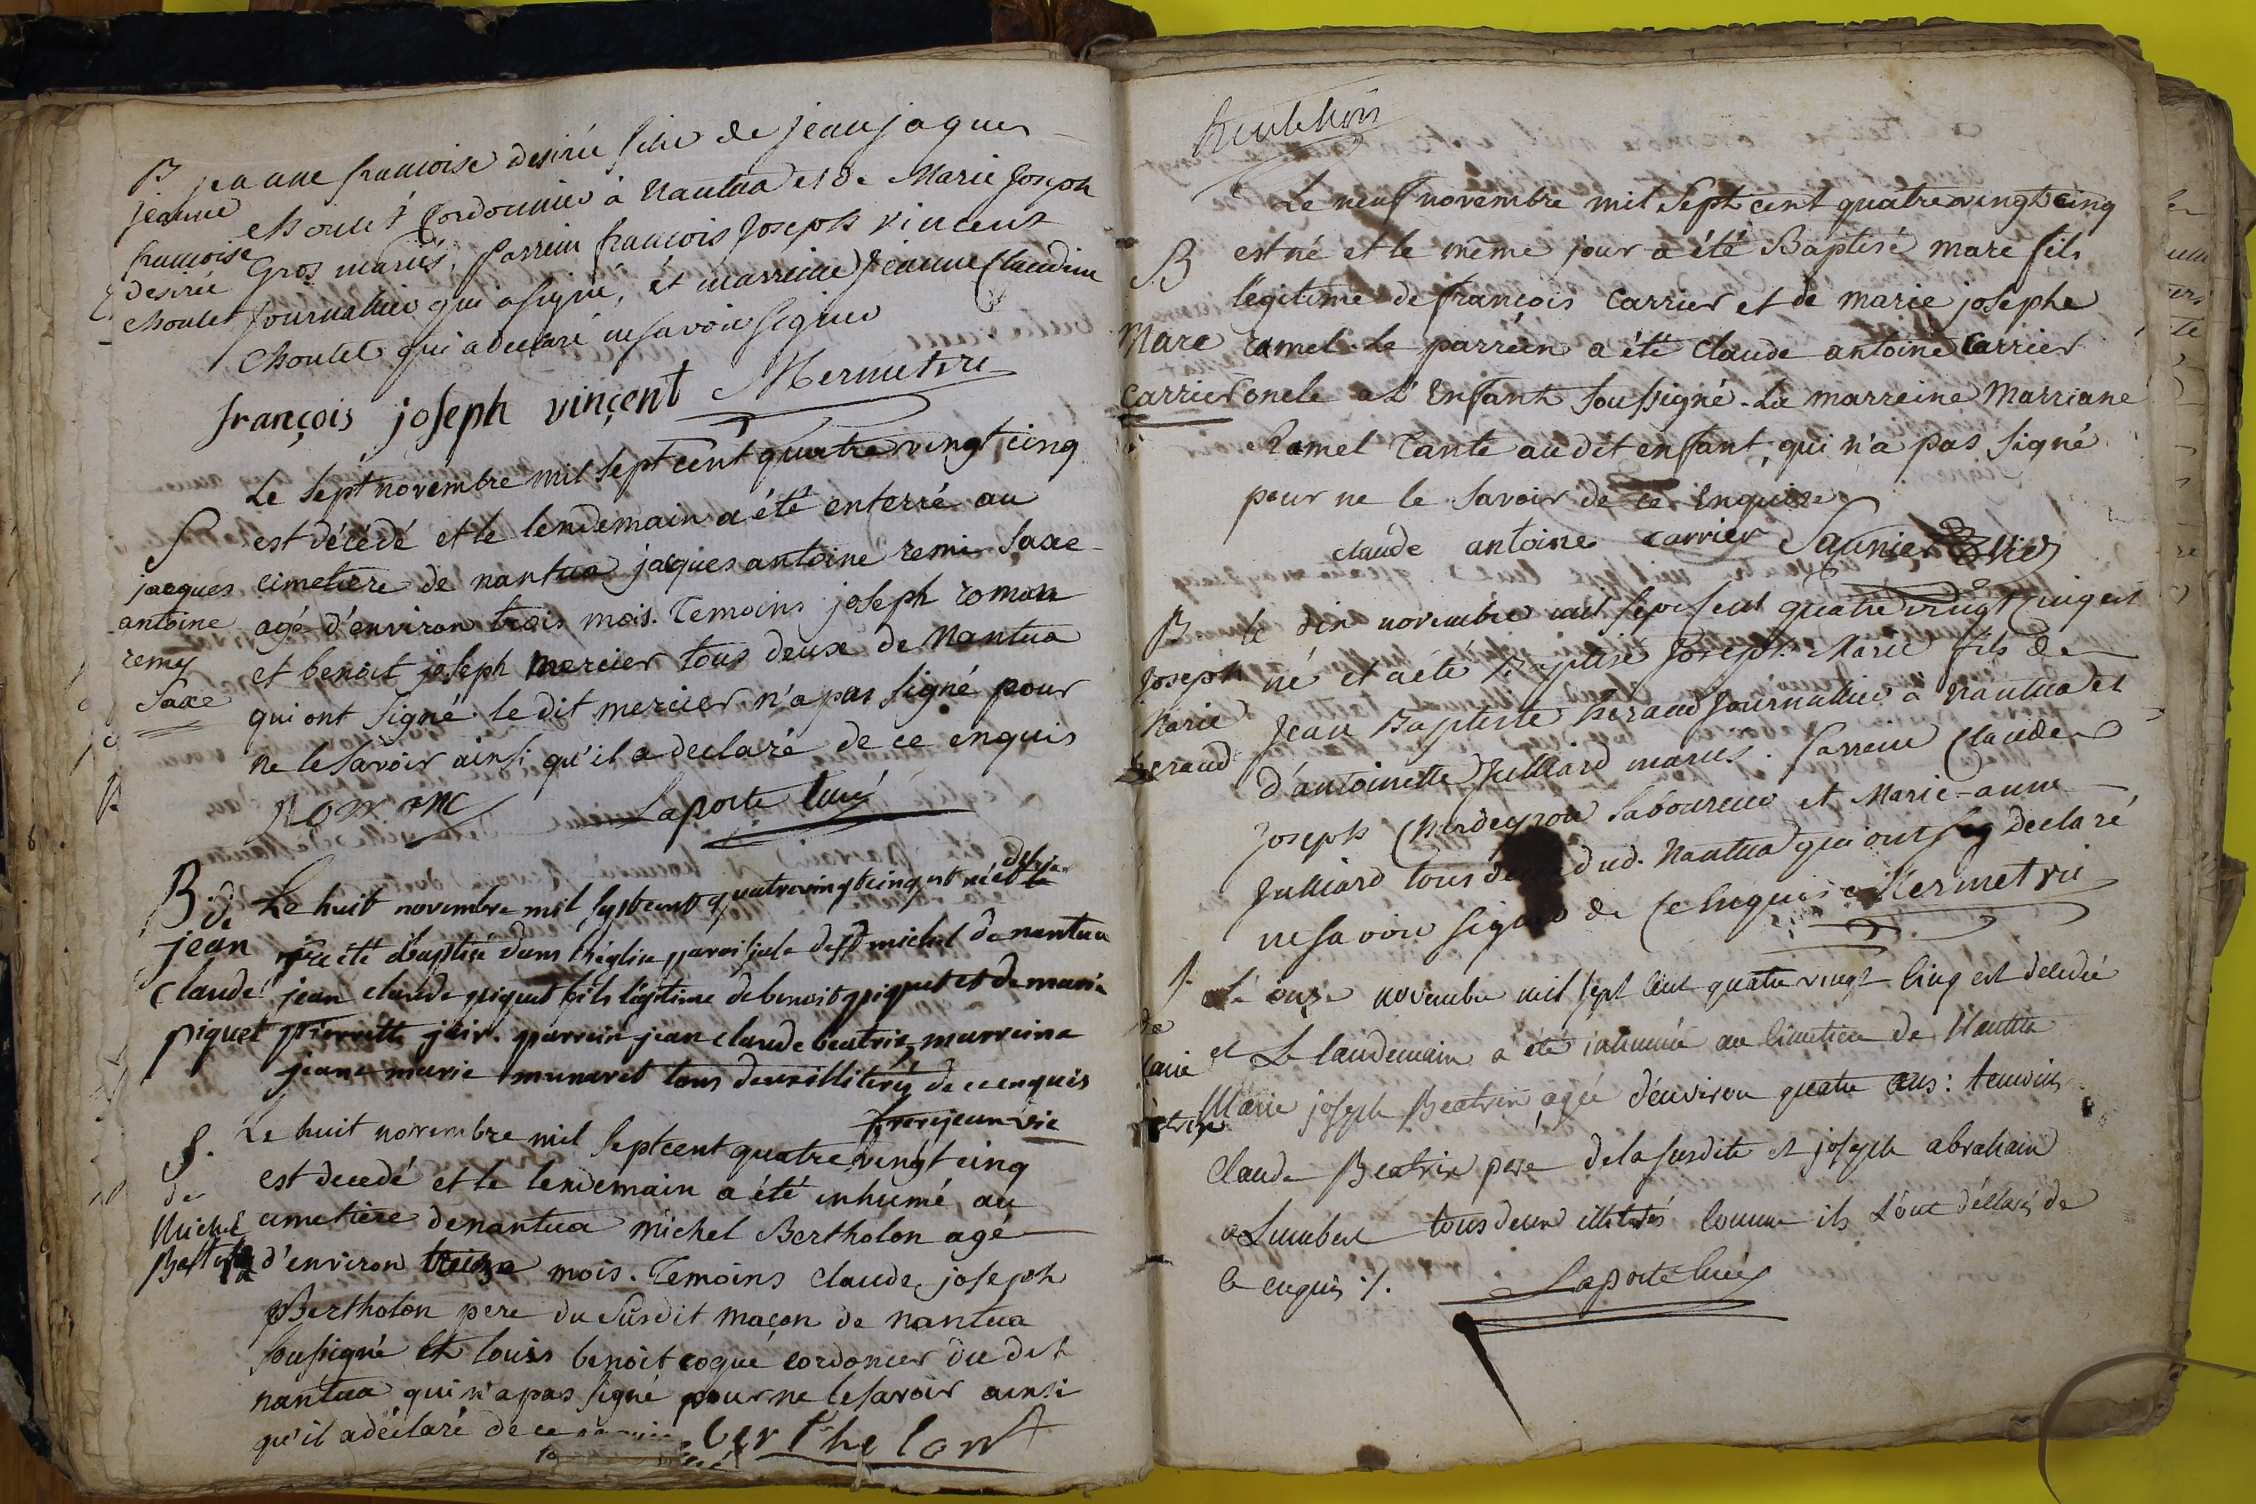 B jeanne francoise desirée fille de jean jaques
jeanne choulet Cordonnier à Nantua et de Marie Joseph
francoise Gros mariés, parrein francois Joseph Vincent
desirée journallier qui a signé, et marreine jeanne Claudine
choulet choulet qui a declaré ne savoir signer
françois joseph vinçent Mermet vic
Le sept novembre mil sept cent quatre vingt cinq
S est décédé et le lendemain a été enterré au
jacques cimetiere de nantua jacques antoine remi Saxe
antoine agé d'environ trois mois. Temoins joseph roman
remy et benoit joseph mercier tous deux de Nantua
Saxe qui ont signé. le dit mercier n'a pas signé pour
ne le savoir ainsi qu'il a declaré de ce enquis
ROMAN Laporte Curé
B. d. Le huit novembre mil sept cent quatre vingt cinq est né et
jean a été baptisé dans l'église paroissiale de st michel de nantua
Claude jean claude piquet fils légitime de benoit piquet et de marie
piquet pierrette jair. parrein jean claude beatrix marreine
jeane marie munaret tous deux illiterés de ce enquis
frerejean vic
S. Le huit novembre mil sept cent quatre vingt cinq
de est decedé et le lendemain a été inhumé au
Michel cimetiere de nantua michel Bertholon agé
d'environ treize mois. Temoins claude joseph
Bertholon pere du susdit maçon de nantua
soussigné et louis benoit coque cordonier du dit
nantua qui n'a pas signé pour ne le savoir ainsi
qu'il a déclaré de ce
berthelon
Le neuf novembre mil sept cent quatre vingt cinq
B est né et le même jour a été Baptisé marc fils
légitime de françois Carrier et de marie josephe
Marc ramel. le parrein a été claude antoine Carrier
carrier oncle a l'Enfant soussigné. La marreine Marriane
Ramel Tante audit enfant, qui n'a pas signé
pour ne le savoir de ce Enquise
claude antoine carrier Saunier vic
B le dix novembre mil sept cent quatre vingt cinq est
Joseph né et a été Baptisé Joseph Marie fils de
Marie Jean Baptiste heraud journallier à Nantua et
heraud d'antoinette Julliard mariés. parrein Claude
Joseph laboureur et Marie-anne
Julliard tous dud. Nantua qui ont declaré
ne savoir signer de ce Enquis Mermet vic
S. Le onze novembre mil sept cent quatre vingt cinq est decedée
et Le lendemain a été inhumée au cimetiere de Nantua
Marie joseph Beatrix agée d'environ quatre ans: temoins
Claude Beatrix pere de la susdite et joseph abraham
tous deux illiterés comme ils l'ont déclaré de
ce enquis ./. Laporte Curé